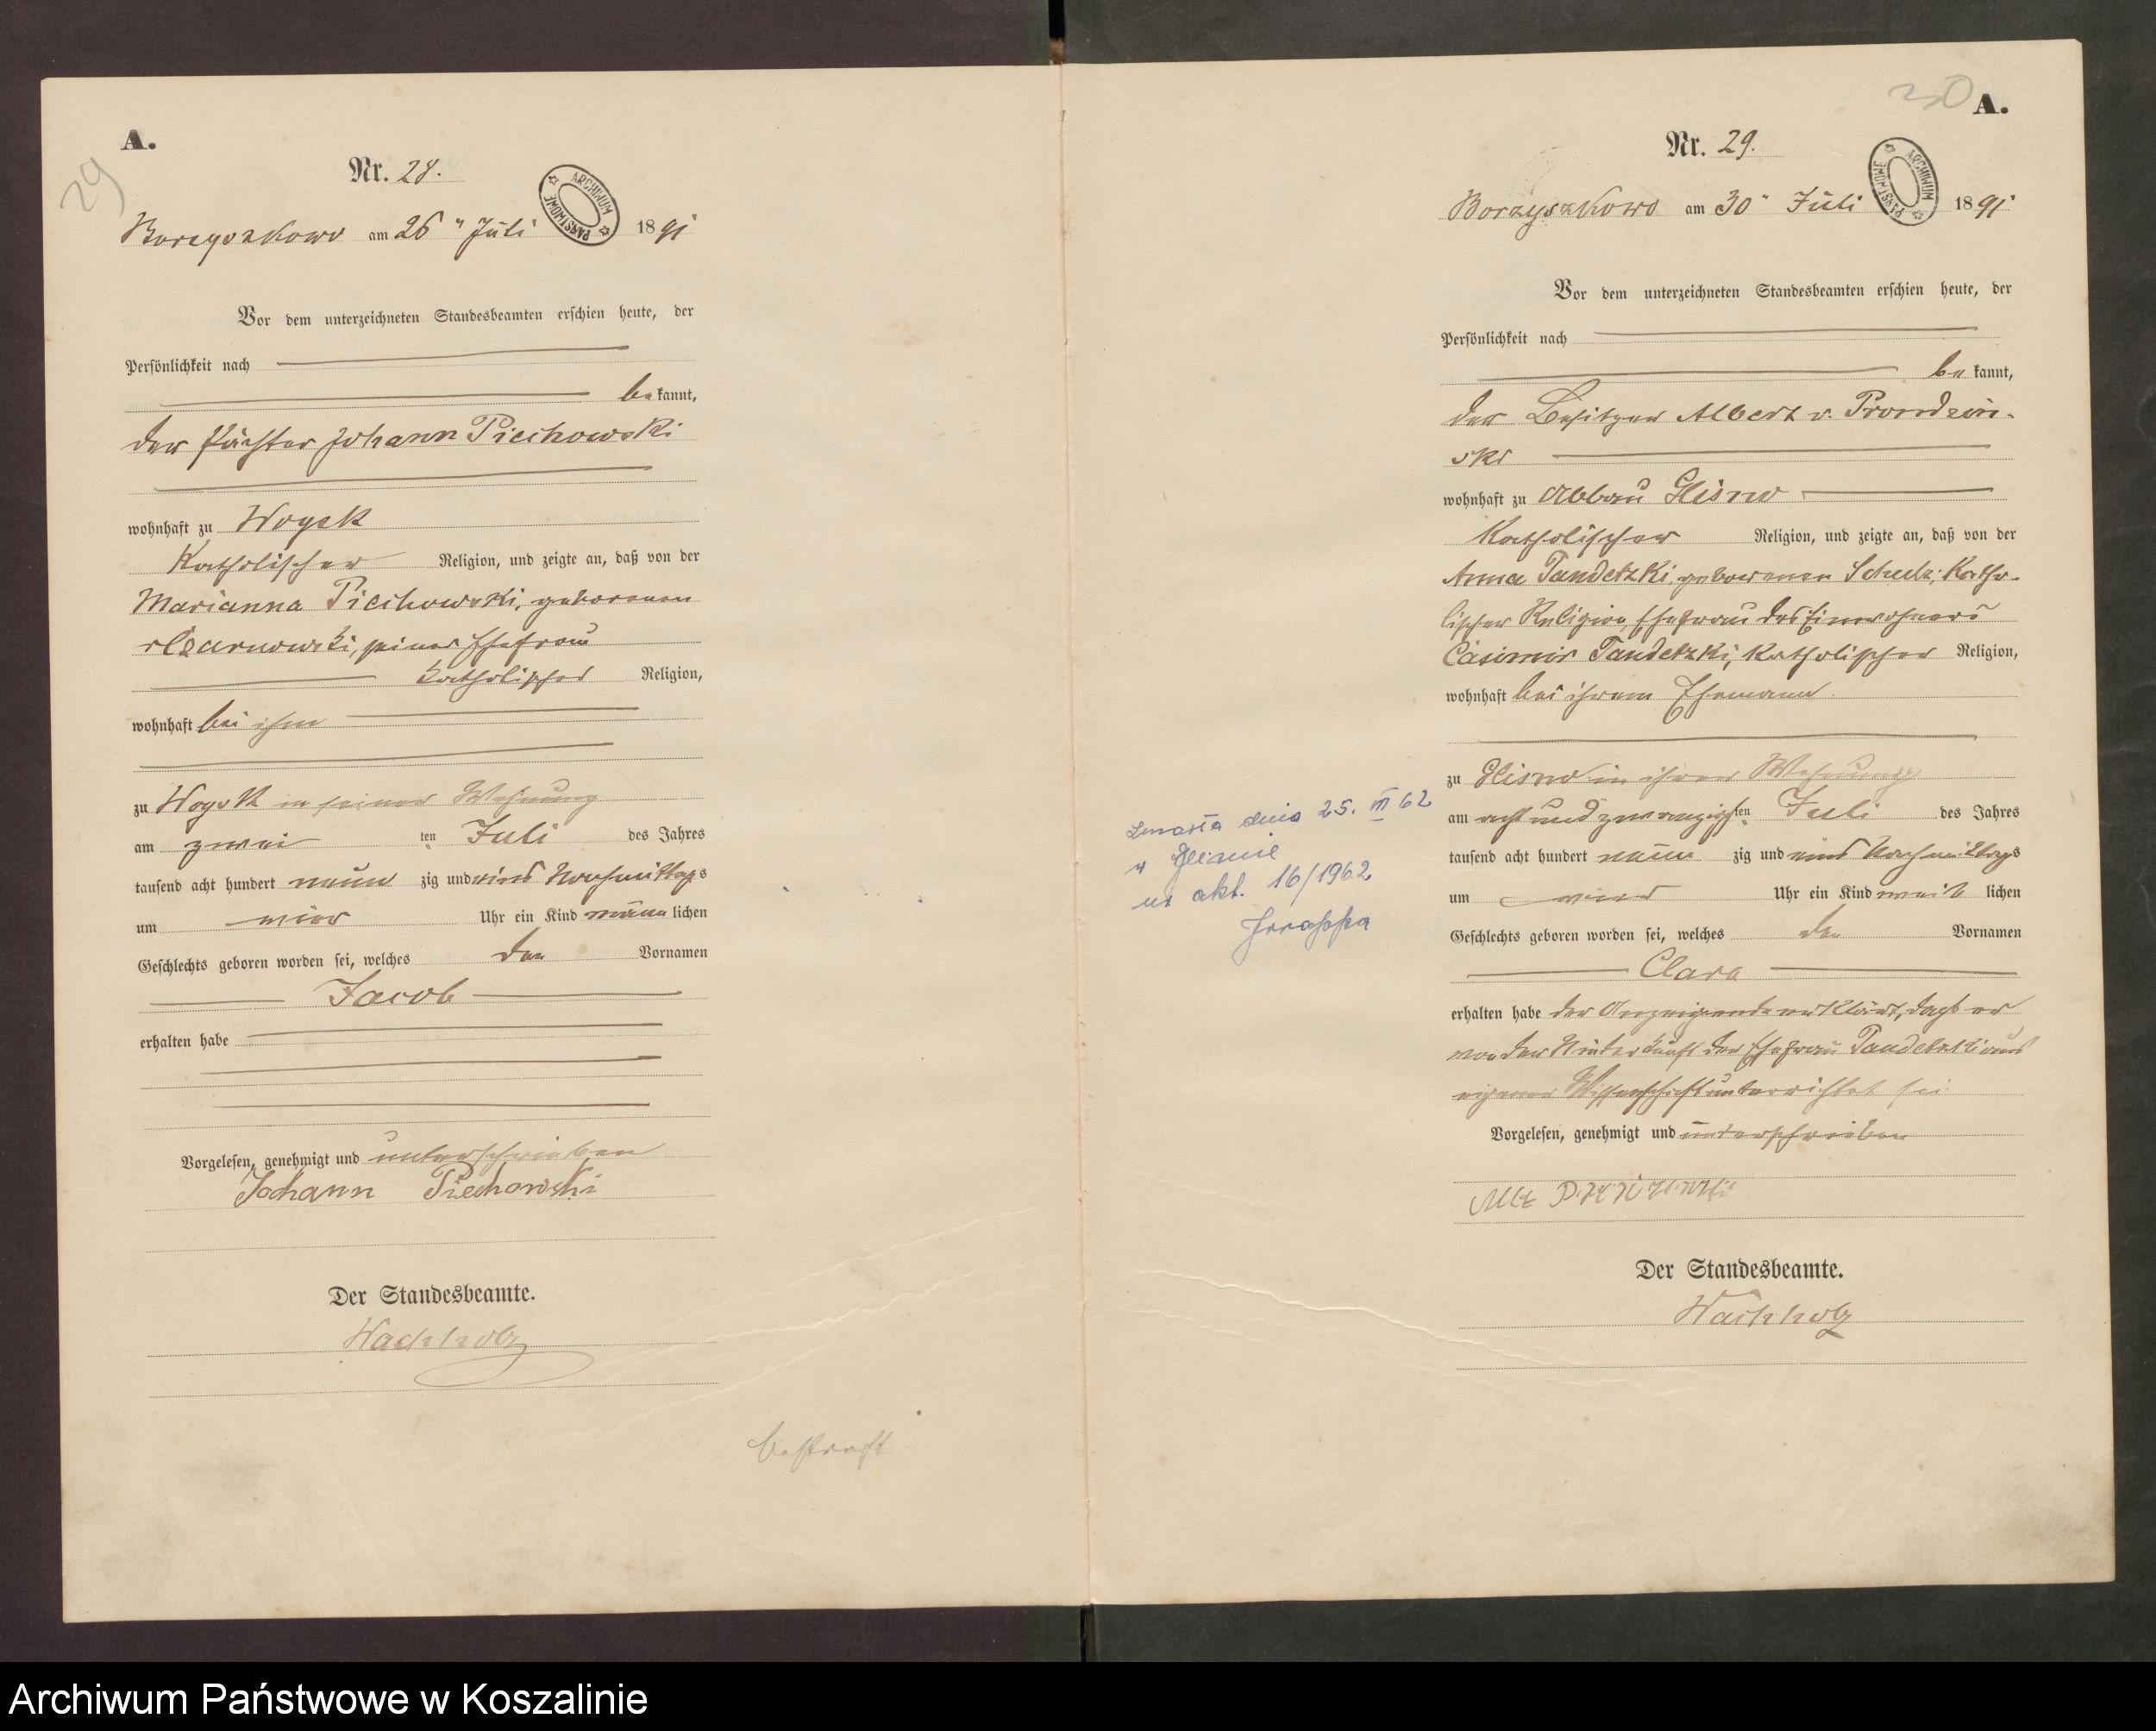 29
A.
Nr. 28.
ARCHIWUM PAŃSTWOWE
Borzyszkowo am 26 " Juli 1891
Vor dem unterzeichneten Standesbeamten erschien heute, der
Persönlichkeit nach
be kannt,
der Pächter Johann Piechowski
wohnhaft zu Wogsk
Katholischer Religion, und zeigte an, daß von der
Marianna Piechowski, geborenen
seiner Ehefrau
katholischer Religion,
wohnhaft bei ihm
zu Wogsk in seiner Wohnung
am zwei ten Juli des Jahres
tausend acht hundert neun zig und eins Nachmittags
um vier Uhr ein Kind männ lichen
Geschlechts geboren worden sei, welches den Vornamen
Jacob
erhalten habe
Vorgelesen, genehmigt und unterschrieben
Johann Piechowski
Der Standesbeamte.
Wachholz
bestraft
30
A.
Nr. 29.
ARCHIWUM PAŃSTWOWE
Borzyszkowo am 30 " Juli 1891
Vor dem unterzeichneten Standesbeamten erschien heute, der
Persönlichkeit nach
be kannt,
der Besitzer Albert v. Prondzin-
ski
wohnhaft zu Abbau Glisno
Katholischer Religion, und zeigte an, daß von der
Anna Tandetzki, geborenen Schulz, Katho-
lischer Religion, Ehefrau des Einwohners
Casimir Tandetzki, Katholischer Religion,
wohnhaft bei ihrem Ehemann
zu Glisno in ihrer Wohnung
am acht und zwanzigsten Juli des Jahres
tausend acht hundert neun zig und eins Nachmittags
um vier Uhr ein Kind weib lichen
Geschlechts geboren worden sei, welches den Vornamen
Clara
erhalten habe der Anzeigende erklärt, daß er
von der Niederkunft der Ehefrau Tandetzki aus
eigener Wissenschaft unterrichtet sei
Vorgelesen, genehmigt und unterschrieben
Der Standesbeamte.
Wachholz
zmarła dnia 25. III 62
w Glisnie
nr akt. 16/1962
Archiwum Państwowe w Koszalinie